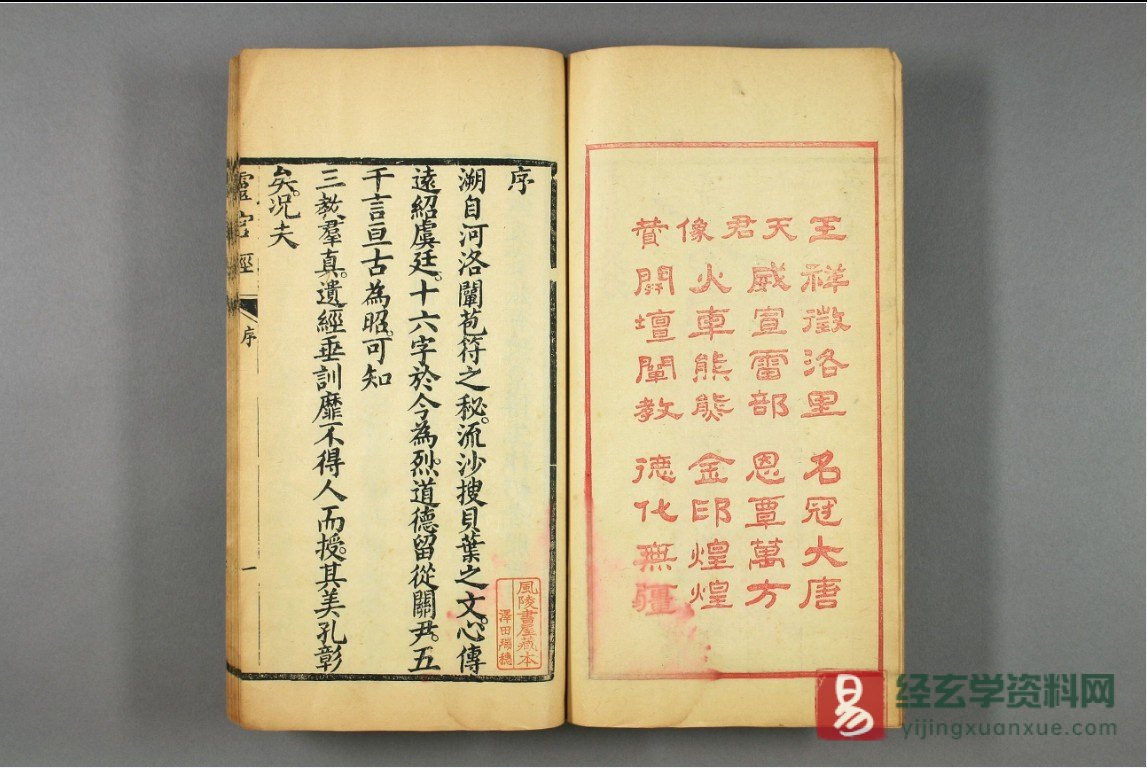 王天君像贊
祥徵洛里 名冠大唐
威宣雷部 恩覃萬方
火車熊熊 金印煌煌
開壇闡教 德化無疆
序
溯自河洛闡苞符之秘。流沙搜貝葉之文。心傳
遠紹虞廷。十六字於今為烈。道德留從關尹。五
千言亘古為昭。可知
三教羣真。遺經垂訓靡不得人而授。其美孔彰
矣。况夫
靈官經 序 一
風陵書屋藏本
澤田瑞穗
易
经玄学资料网
yijingxuanxue.com